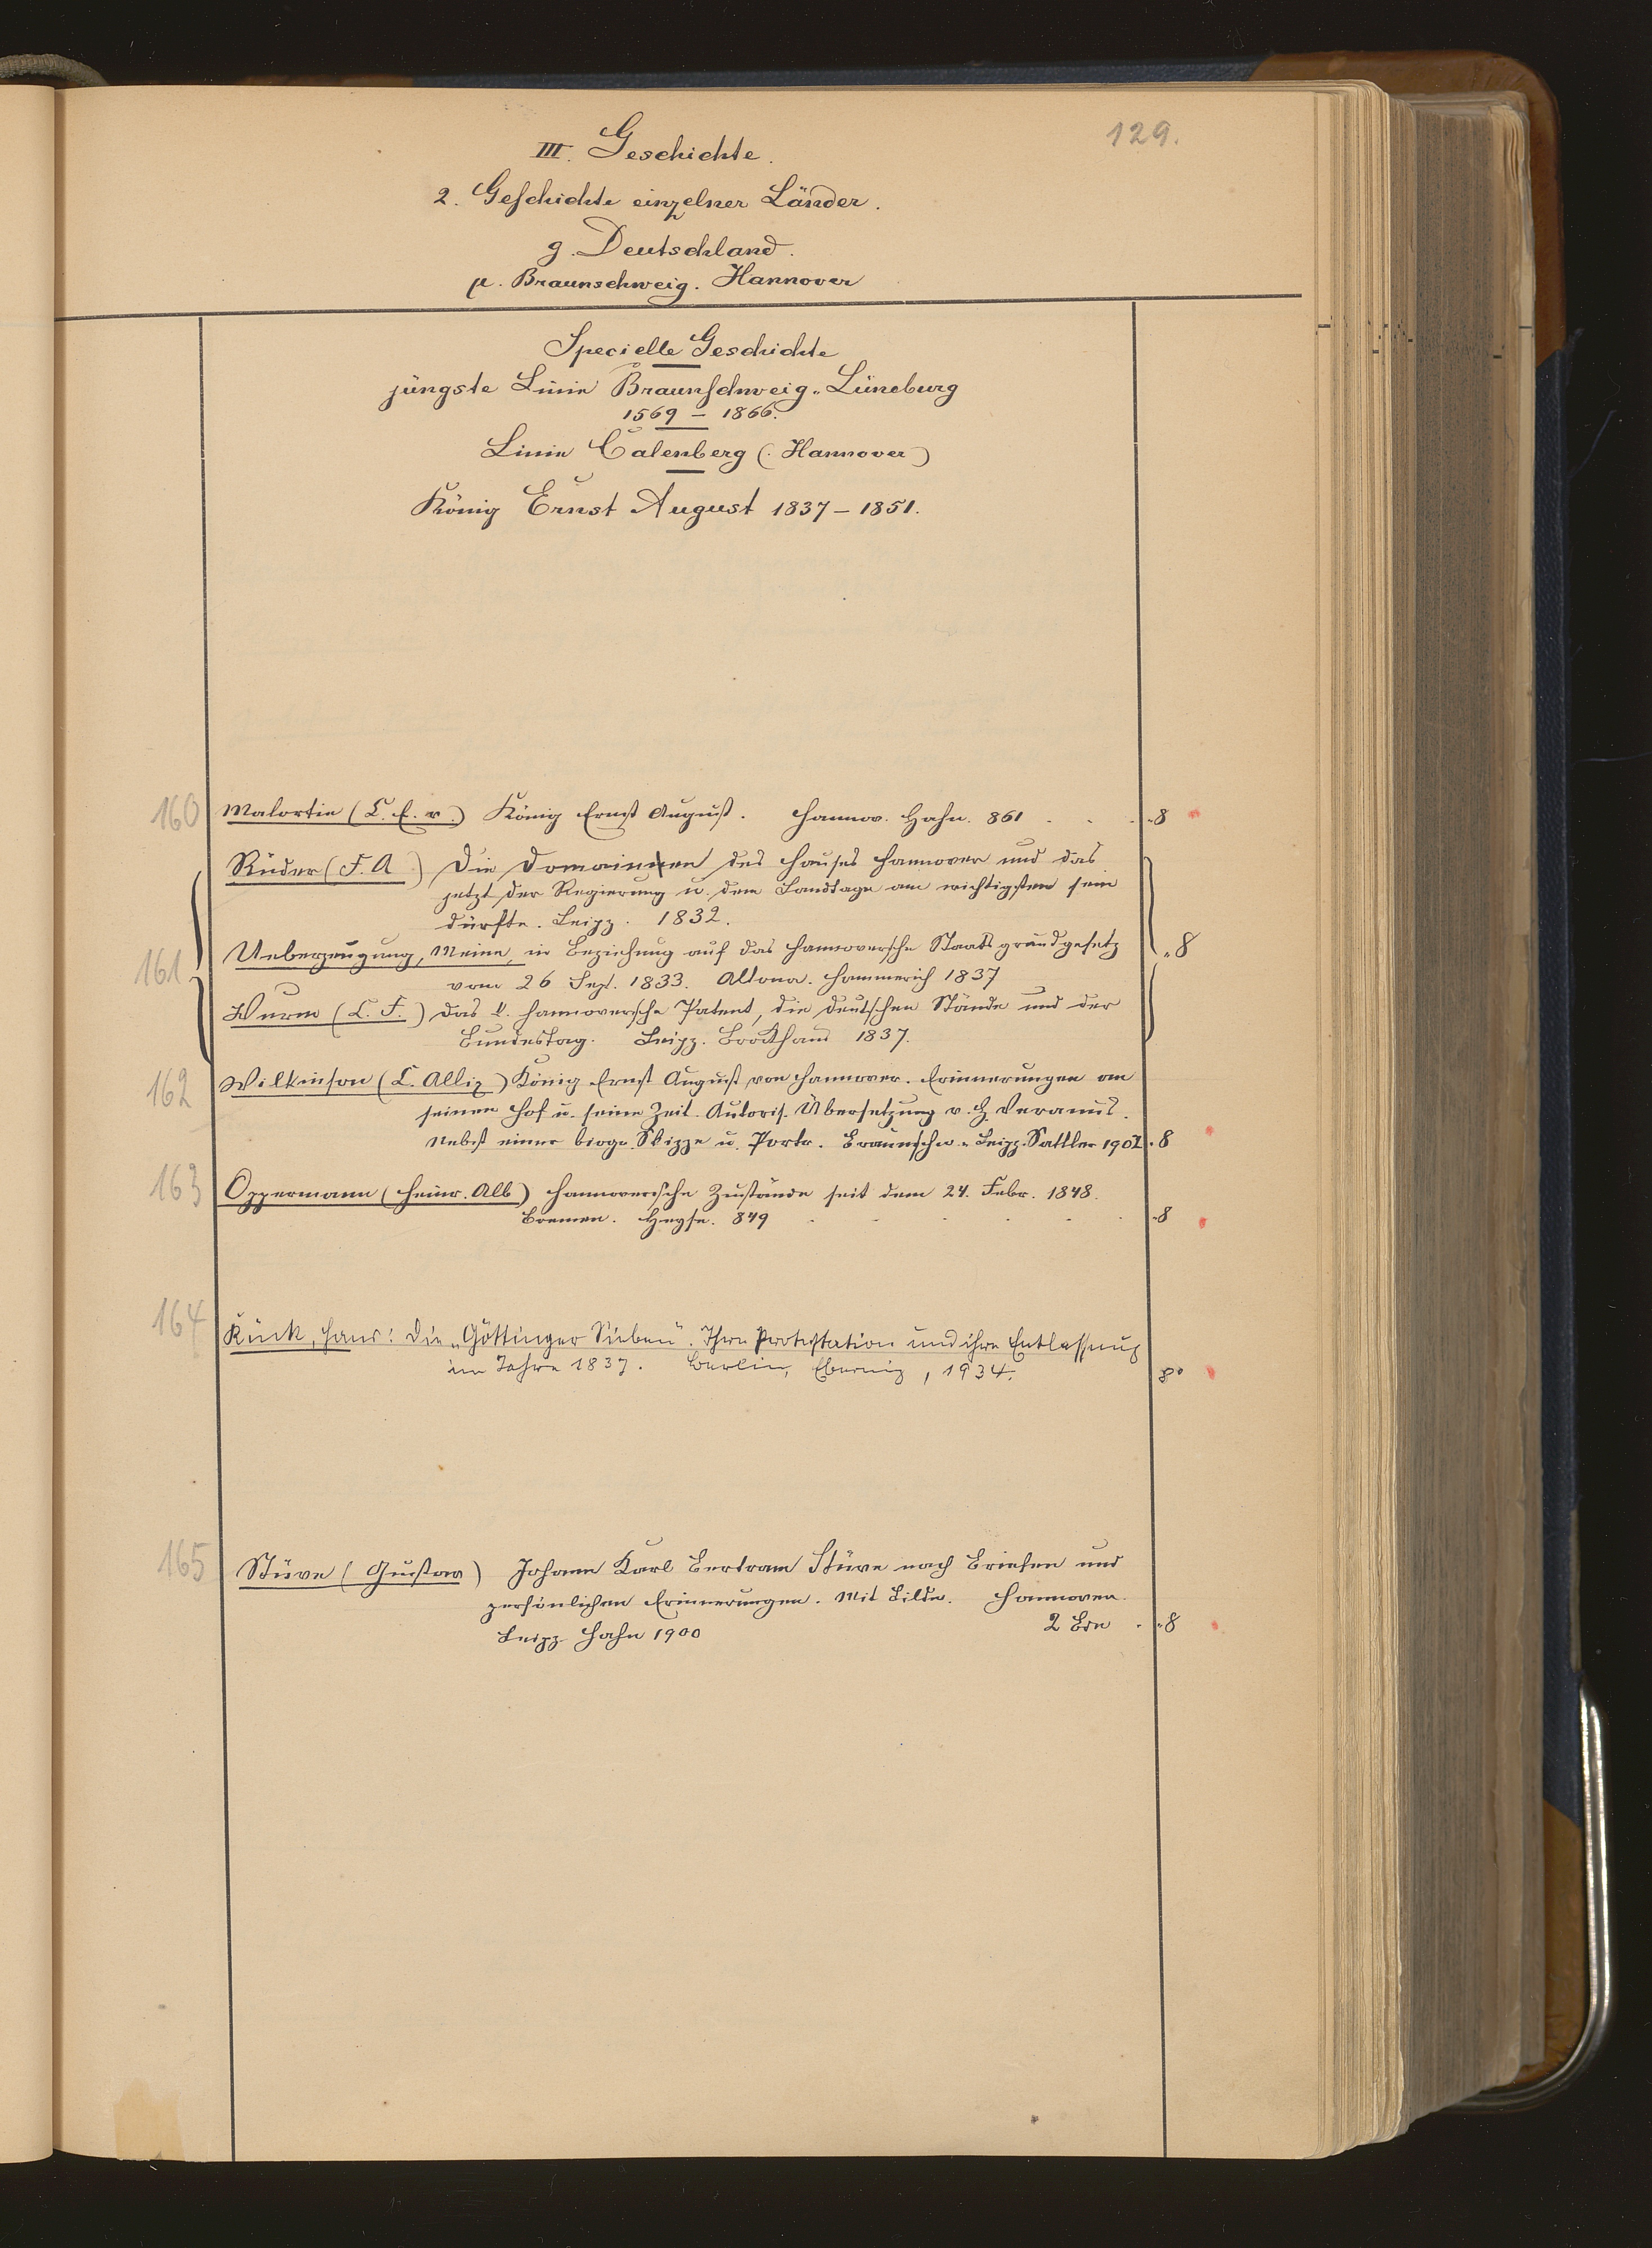 129.
III. Geschichte.
2. Geschichte einzelner Länder.
g. Deutschland.
μ. Braunschweig. Hannover
Specielle Geschichte
jüngste Linie Braunschweig-Lüneburg
1569 – 1866.
Linie Calenberg (Hannover)
König Ernst August 1837 – 1851.
160 Malortie (C. E. v.) König Ernst August. Hannov. Hahn. 861 . . . 8
Rüder (F. A) Die Domainen des Hauses Hannover und das
jetzt der Regierung u. dem Landtage am wichtigsten sein
dürfte. Leipz. 1832.
161 Ueberzeugung, Meine, in Beziehung auf das hannoversche Staatsgrundgesetz 8
vom 26 Sept. 1833. Altona. Hammerich 1837
Wurm (C. F.) Das k. hannoversche Patent, die deutschen Stände und der
Bundestag. Leipz. Brockhaus 1837.
162 Wilkinson (C. Allix) König Ernst August von Hannover. Erinnerungen an
seinen Hof u. seine Zeit. Autoris. Übersetzung v. H. Veranus.
Nebst einer biogr. Skizze u. Portr. Braunschw. Leipz. Sattler 1902 8
163 Oppermann (Heinr. Alb) Hannoversche Zustände seit dem 24. Febr. 1848.
Bremen. Heyse. 849 . . . . . 8
164 Kück, Hans: Die „Göttinger Sieben“. Ihre Protestation und ihre Entlassung
im Jahre 1837. Berlin, Ebering, 1934. 8°
165 Stüve (Gustav) Johann Karl Bertram Stüve nach Briefen und
persönlichen Erinnerungen. Mit Bildn. Hannover.
Leipz. Hahn 1900 2 Bde . 8